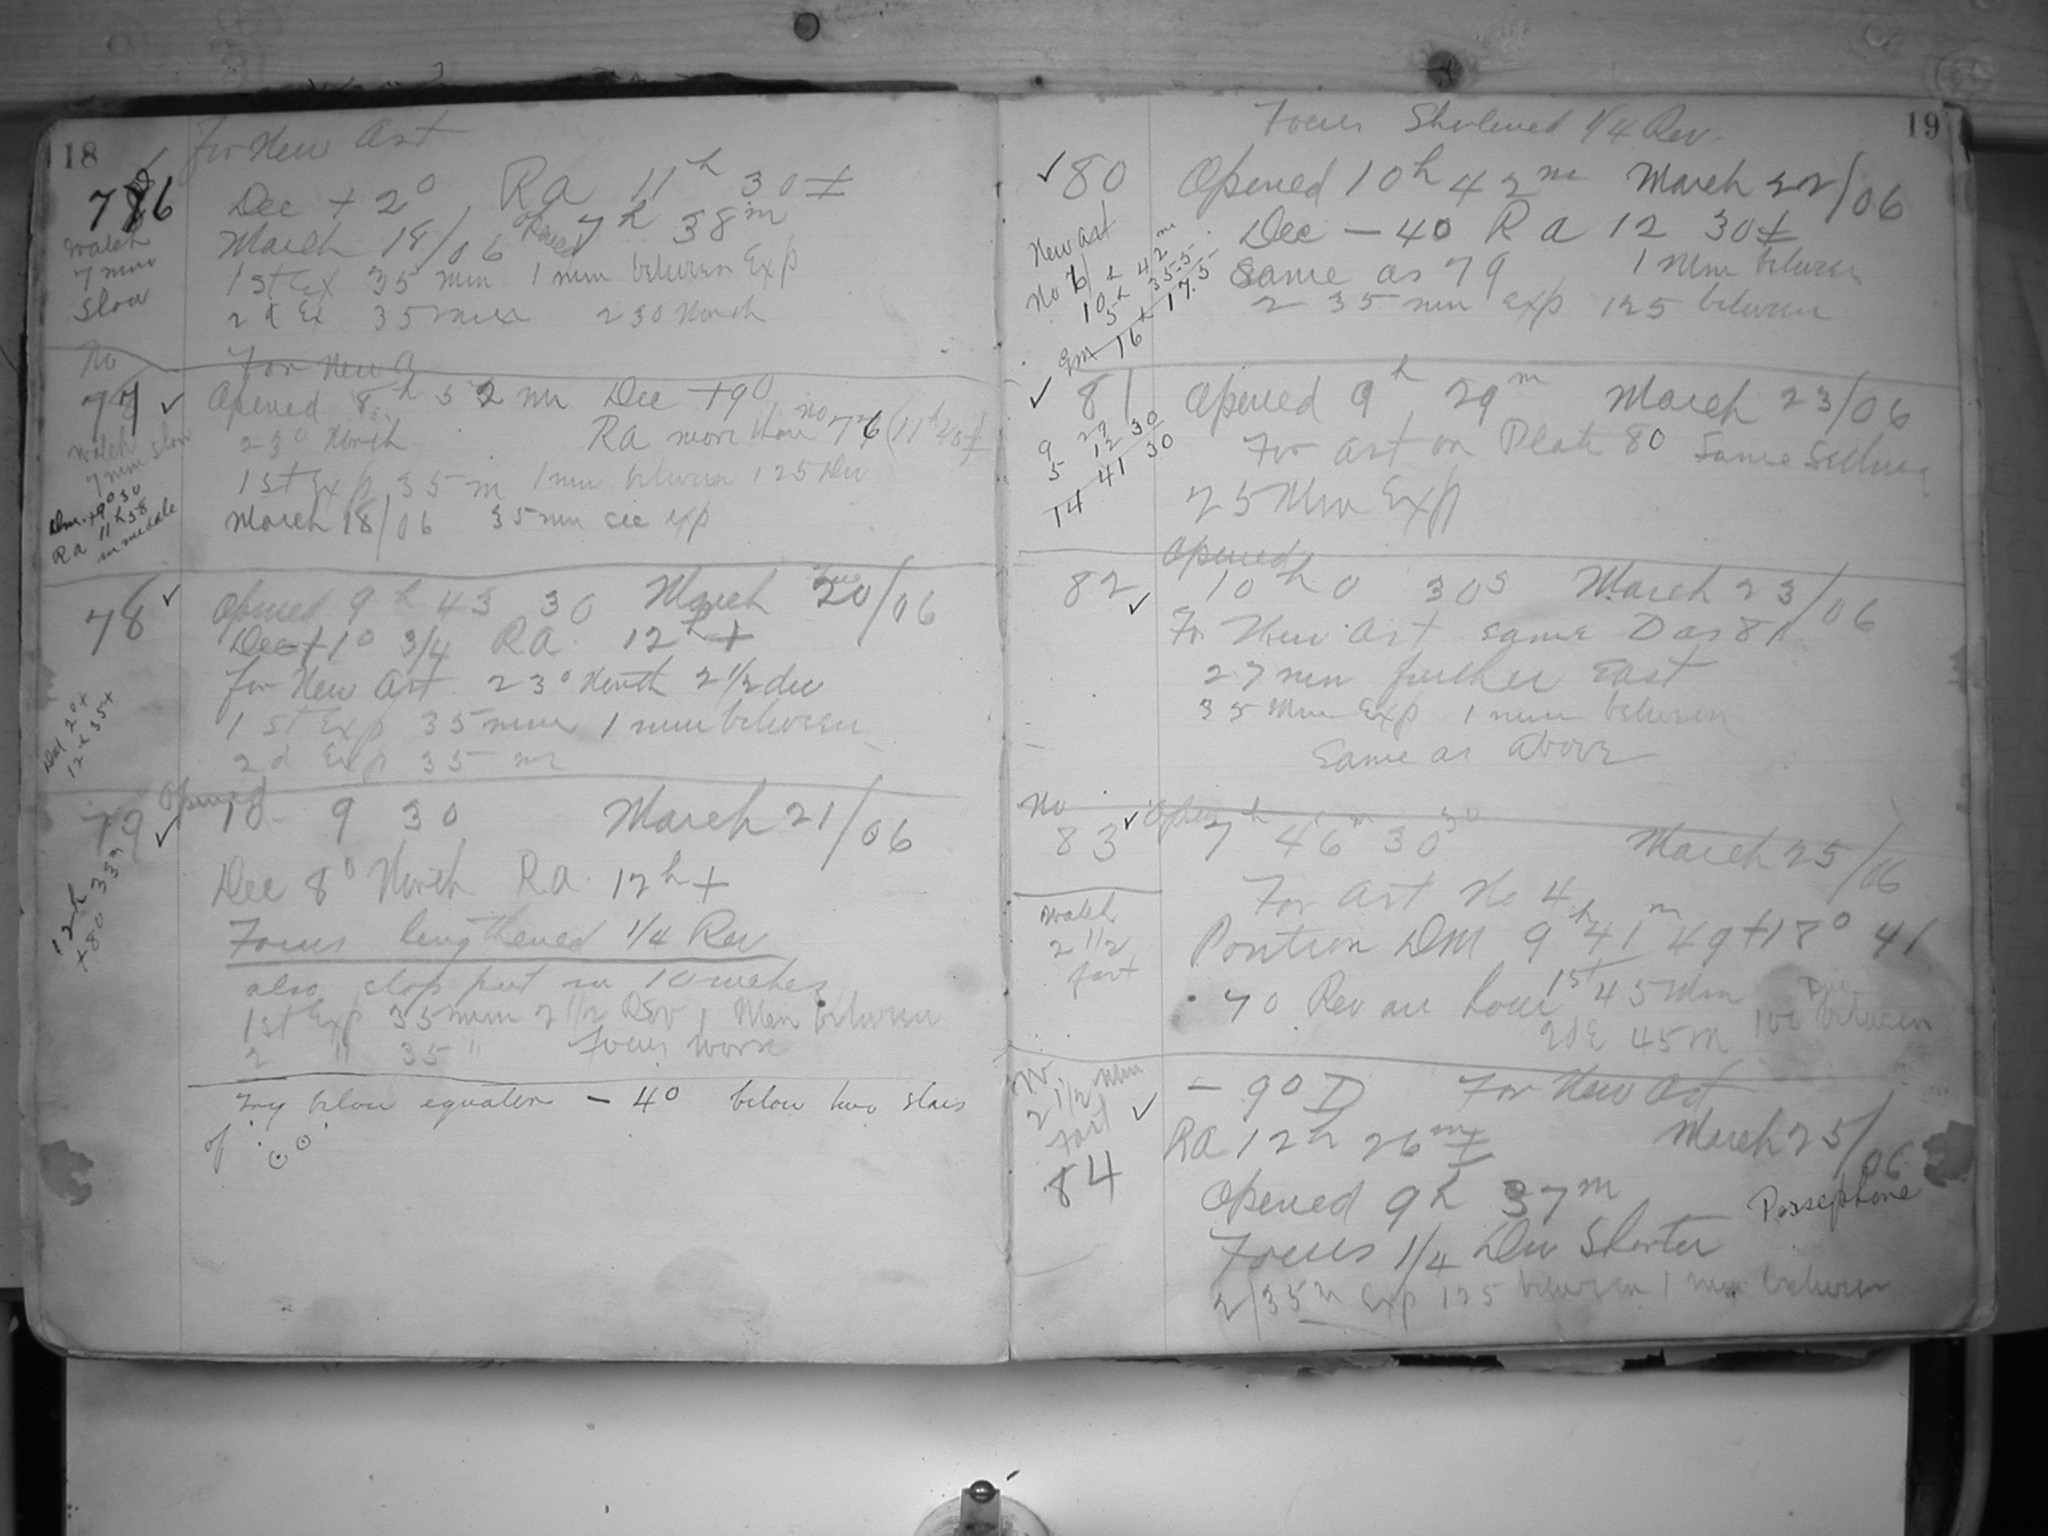 18
For New Ast
776
Dec + 2° Ra 11h 30 ±
Watch
7 min
Slow
March 18/06 opened 7h 38m
1st Ex 35 min 1 min between Exp
2d Ex 35 min 230 North
No
77 ✓
For New a
Opened 8h 52 m Dec + 9°
23° North RA more than no 776 (11h 40±
Watch
7 min slow
1st Exp 35 m 1 min between 125 Div
March 18/06 35 min sec exp
Dm. +9° 30
Ra 11h 58
in middle
78 ✓
Opened 9h 43 30 March Tue 20/06
Dec + 1° 3/4 RA. 12h +
For New Ast 23° North 2 1/2 dev
1st Exp 35 min 1 min between
2d Exp 35 m
2° +
12h 35+
79 ✓
Opened 10 9 30 March 21/06
12h 33m
+80
Dec 8° North Ra. 12h +
Focus lengthened 1/4 Rev
also stop put in 10 inches
1st Exp 35 min 2 1/2 Rev 1 Min between
2 " 35 " Focus worse
Try below equator - 40 below two stars
of
19
Focus Shortened 1/4 Rev.
✓ 80
Opened 10h 42m March 22/06
New Ast
Dec - 40 Ra 12 30±
Same as 79 1 Min between
2 35 min exp 125 between
✓ 81
Opened 9h 29m March 23/06
9 29 30
5 12
14 41 30
For ast on Plate 80 Same Setting
75 Min Exp
82 ✓
Opened
10h 0 30s March 23/06
For New Ast same D as 81
27 min further East
35 Min Exp 1 min between
Same as Above
No
83 ✓
Open 7h 46m 30 March 25/06
For Ast No 4
Watch
2 1/2
fast
Position DM 9h 41m 49 +18° 41
70 Rev an hour 1st 45 Min
2d E 45 m 100 between
2 1/2 Min
fast ✓
84
- 90 D For New Ast
RA 12h 26m ± March 25/06
Opened 9h 37m
Persephone
Focus 1/4 Div Shorter
2/35m Exp 125 between 1 min between